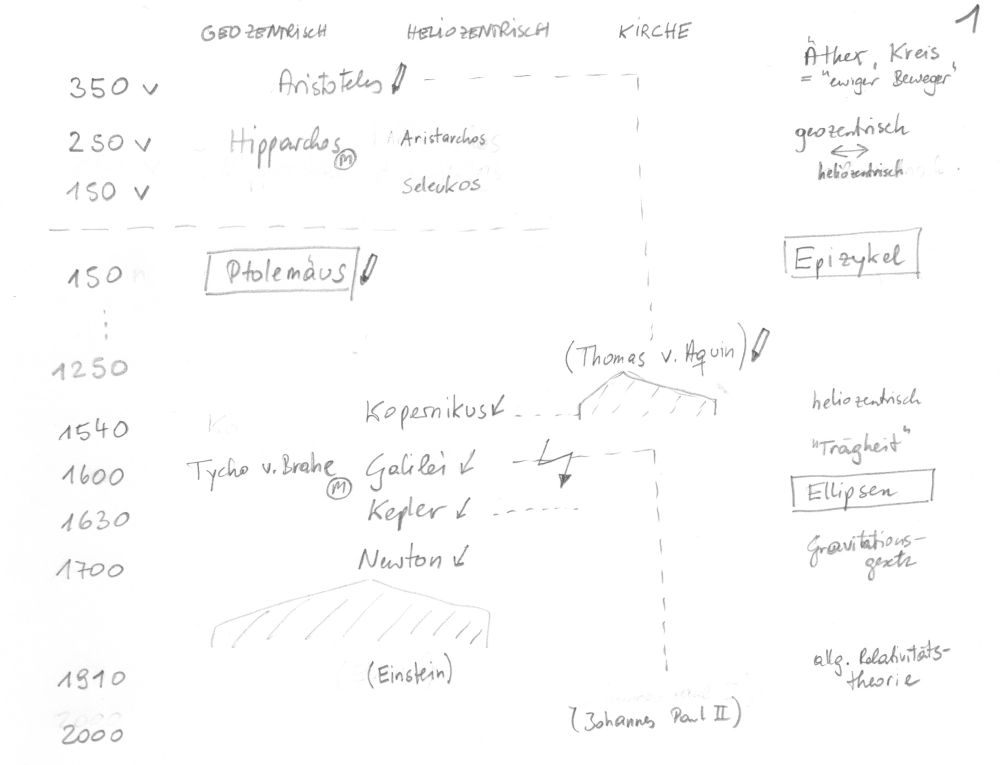 1
GEOZENTRISCH HELIOZENTRISCH KIRCHE
"Äther, Kreis"
= "ewiger Beweger"
350 v Aristoteles
250 v Hipparchos M Aristarchos geozentrisch
↔
150 v Seleukos heliozentrisch
150 Ptolemäus Epizykel
1250 (Thomas v. Aquin)
1540 Kopernikus heliozentrisch
1600 Tycho v. Brahe M Galilei "Trägheit"
1630 Kepler Ellipsen
1700 Newton Gravitations-
gesetz
1910 (Einstein) allg. Relativitäts-
theorie
2000 (Johannes Paul II)